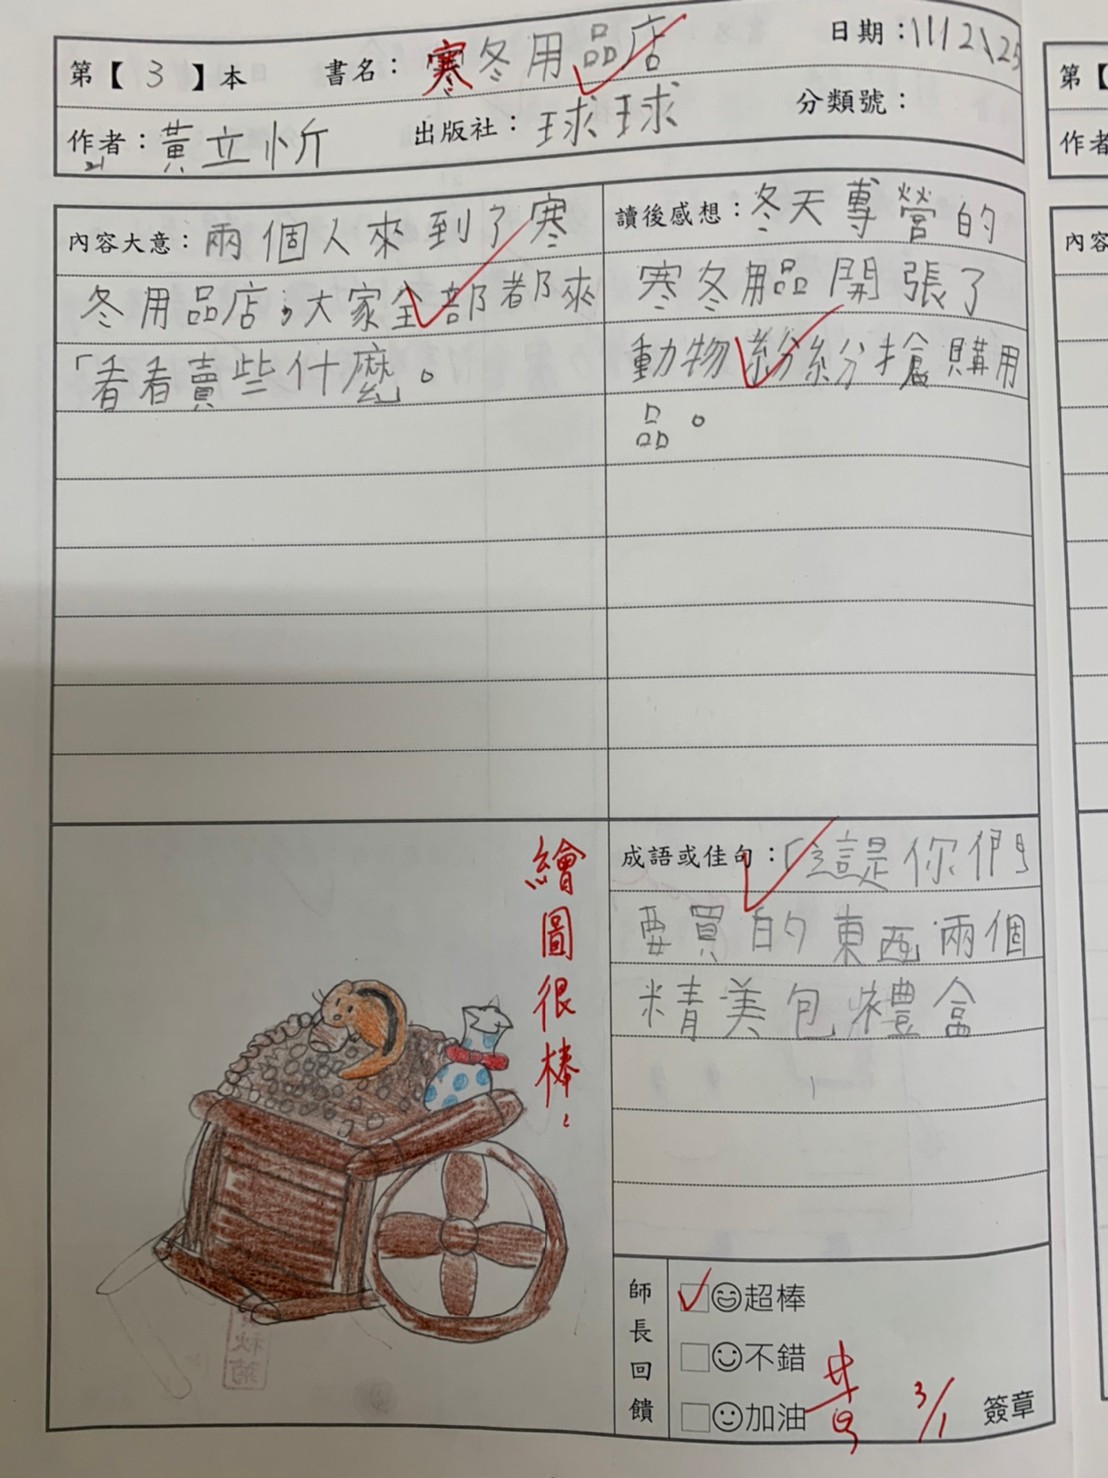 第【 3 】本 書名：寒冬用品店 日期：111 12\25
作者：黃立忻 出版社：球球 分類號：
21
內容大意：兩個人來到了寒
冬用品店，大家全部都來
「看看賣些什麼」。
讀後感想：冬天專營的
寒冬用品開張了
動物紛紛搶購用
品。
成語或佳句：「這是你們」
要買的東西兩個
精美包禮盒
繪圖很棒
師長回饋
超棒
不錯
加油
3/1 簽章
第【
作者
內容